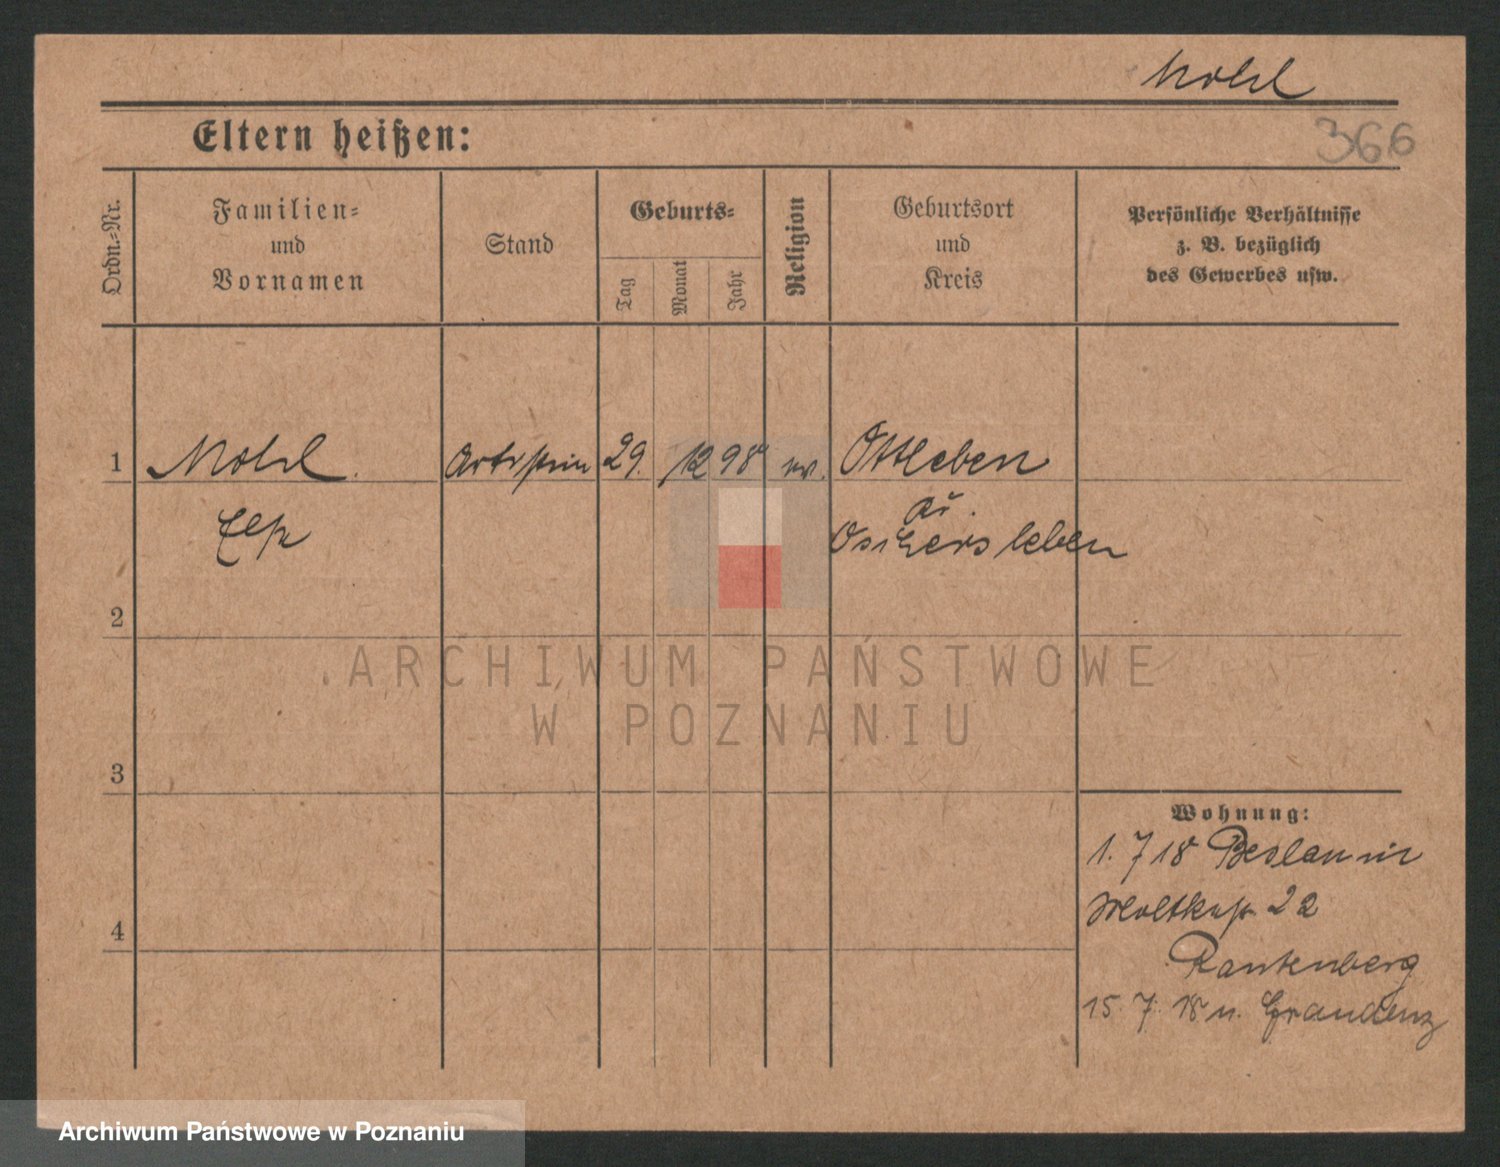 Mohl
366
Eltern heißen:
Ordn.=Nr.
Familien=
und
Vornamen
Stand
Geburts=
Tag
Monat
Jahr
Religion
Geburtsort
und
Kreis
Persönliche Verhältnisse
z. B. bezüglich
des Gewerbes usw.
1 Mohl. Artistin 29. 12 98 ev. Ottleben
Else Kr.
Oschersleben
2
3
4
Wohnung:
1. 7 18 Breslau
Moltkestr 22
Rautenberg
15. 7. 18 n. Graudenz
ARCHIWUM PAŃSTWOWE
W POZNANIU
Archiwum Państwowe w Poznaniu